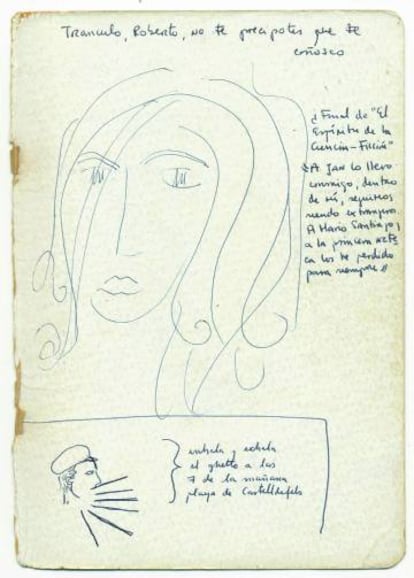 Tranculo, Roberto, no te precipotes que te
conosco
¿Final de "El
Espíritu de la
Ciencia-Ficción"
A Jan lo llevo
conmigo, dentro
de mí, seguimos
siendo extranjeros.
A Mario Santiago y
a la princesa azteca
los he perdido
para siempre»
inhala y exhala
el ghetto a las
7 de la mañana
playa de Castelldefels